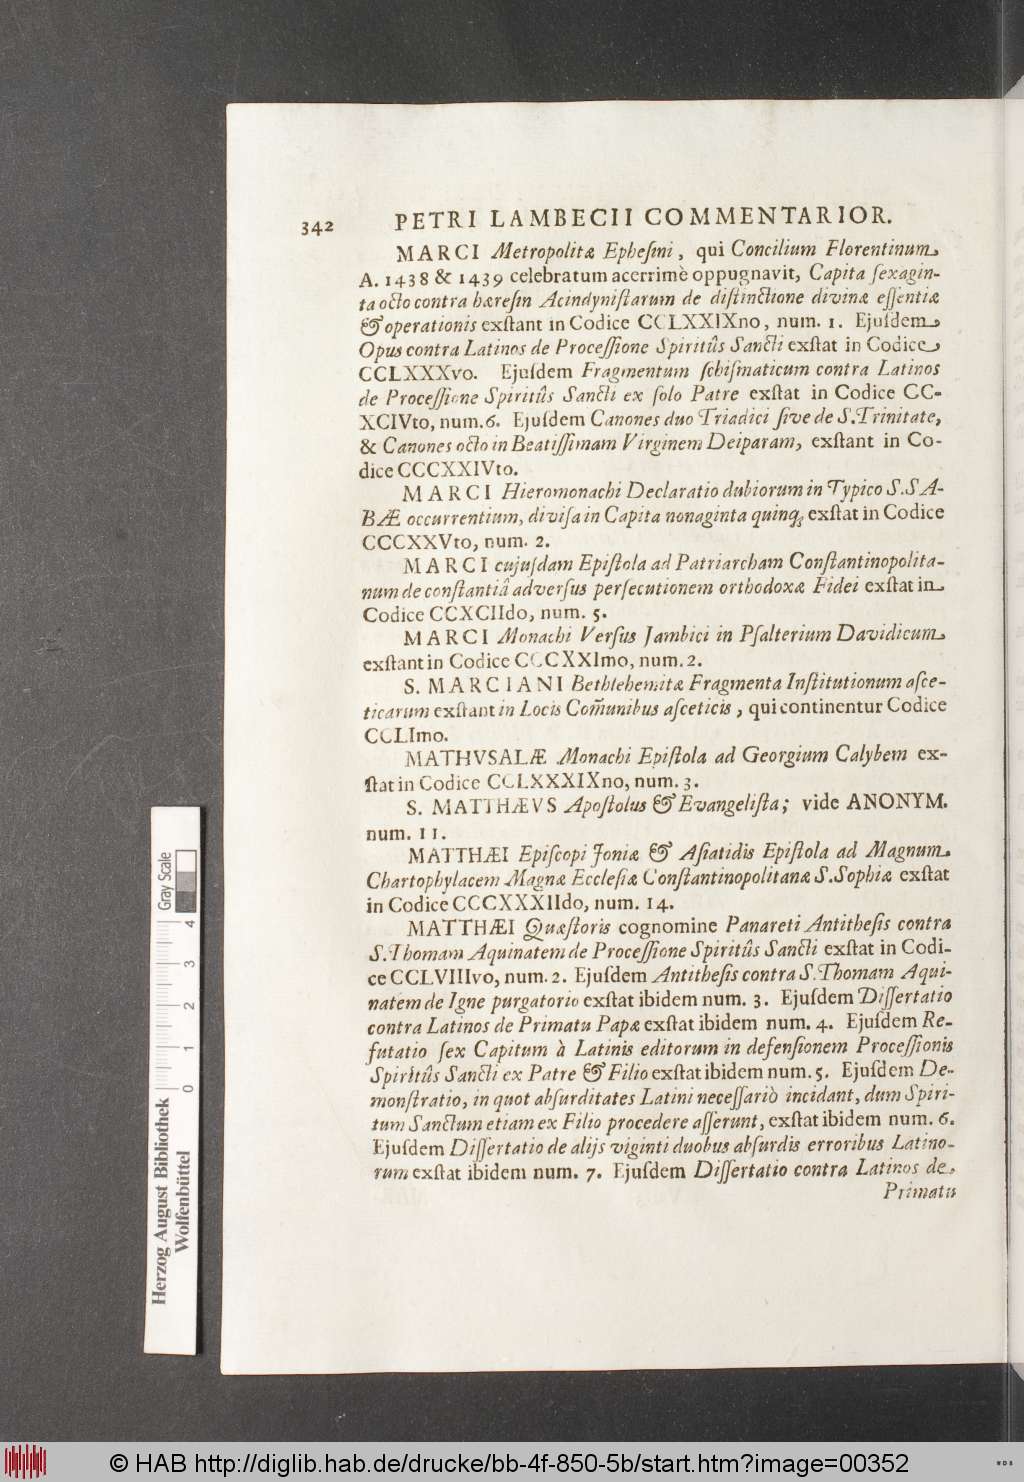 342 PETRI LAMBECII COMMENTARIOR.
MARCI Metropolitæ Epheſini, qui Concilium Florentinum
A. 1438 & 1439 celebratum acerrimè oppugnavit, Capita ſexagin-
ta octo contra hæreſin Acindyniſtarum de diſtinctione divinæ eſſentiæ
& operationis exſtant in Codice CCLXXIXno, num. 1. Ejuſdem
Opus contra Latinos de Proceſſione Spiritûs Sancti exſtat in Codice
CCLXXXvo. Ejuſdem Fragmentum ſchiſmaticum contra Latinos
de Proceſſione Spiritûs Sancti ex ſolo Patre exſtat in Codice CC-
XCIVto, num. 6. Ejuſdem Canones duo Triadici ſive de S. Trinitate,
& Canones octo in Beatiſſimam Virginem Deiparam, exſtant in Co-
dice CCCXXIVto.
MARCI Hieromonachi Declaratio dubiorum in Typico S. SA-
BÆ occurrentium, diviſa in Capita nonaginta quinq; exſtat in Codice
CCCXXVto, num. 2.
MARCI cujuſdam Epiſtola ad Patriarcham Conſtantinopolita-
num de conſtantiâ adverſus perſecutionem orthodoxæ Fidei exſtat in
Codice CCXCIIdo, num. 5.
MARCI Monachi Verſus Jambici in Pſalterium Davidicum
exſtant in Codice CCCXXImo, num. 2.
S. MARCIANI Bethlehemitæ Fragmenta Inſtitutionum aſce-
ticarum exſtant in Locis Com̃unibus aſceticis, qui continentur Codice
CCLImo.
MATHVSALÆ Monachi Epiſtola ad Georgium Calybem ex-
ſtat in Codice CCLXXXIXno, num. 3.
S. MATTHÆVS Apoſtolus & Evangeliſta; vide ANONYM.
num. 11.
MATTHÆI Epiſcopi Joniæ & Aſiatidis Epiſtola ad Magnum
Chartophylacem Magnæ Eccleſiæ Conſtantinopolitanæ S. Sophiæ exſtat
in Codice CCCXXXIIdo, num. 14.
MATTHÆI Quæſtoris cognomine Panareti Antitheſis contra
S. Thomam Aquinatem de Proceſſione Spiritûs Sancti exſtat in Codi-
ce CCLVIIIvo, num. 2. Ejuſdem Antitheſis contra S. Thomam Aqui-
natem de Igne purgatorio exſtat ibidem num. 3. Ejuſdem Diſſertatio
contra Latinos de Primatu Papæ exſtat ibidem num. 4. Ejuſdem Re-
futatio ſex Capitum à Latinis editorum in defenſionem Proceſſionis
Spiritûs Sancti ex Patre & Filio exſtat ibidem num. 5. Ejuſdem De-
monſtratio, in quot abſurditates Latini neceſſariò incidant, dum Spiri-
tum Sanctum etiam ex Filio procedere aſſerunt, exſtat ibidem num. 6.
Ejuſdem Diſſertatio de alijs viginti duobus abſurdis erroribus Latino-
rum exſtat ibidem num. 7. Ejuſdem Diſſertatio contra Latinos de
Primatu
Herzog August Bibliothek
Wolfenbüttel
0 1 2 3 4
Gray Scale
© HAB http://diglib.hab.de/drucke/bb-4f-850-5b/start.htm?image=00352